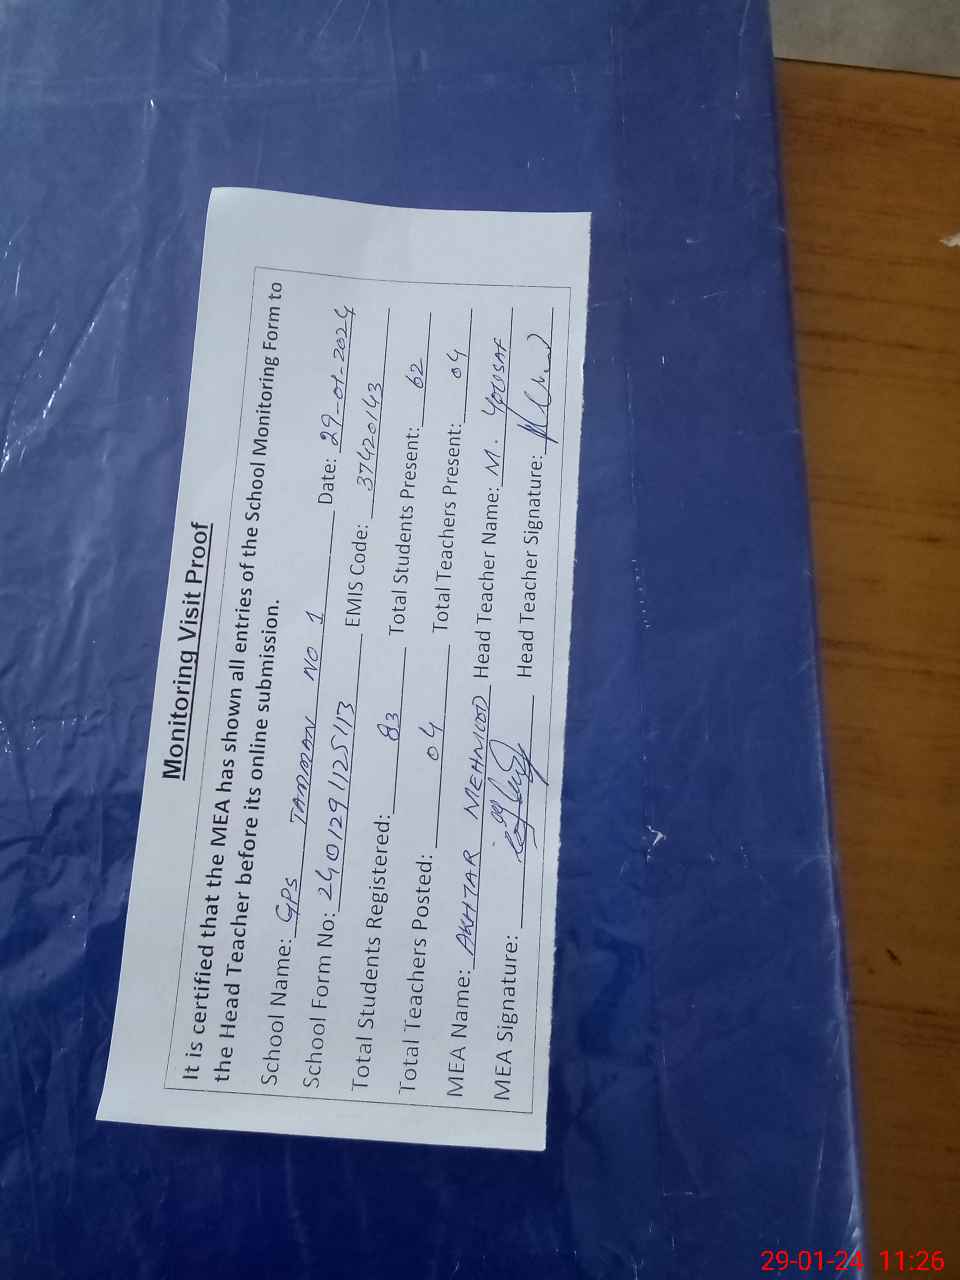 Monitoring Visit Proof
It is certified that the MEA has shown all entries of the School Monitoring Form to
the Head Teacher before its online submission.
School Name: GPS TAMMAN NO 1 Date: 29-01-2024
School Form No: 2401291125113 EMIS Code: 37420143
Total Students Registered: 83 Total Students Present: 62
Total Teachers Posted: 04 Total Teachers Present: 04
MEA Name: AKHTAR MEHMOOD Head Teacher Name: M. YOUSAF
MEA Signature: Head Teacher Signature:
29-01-24 11:26